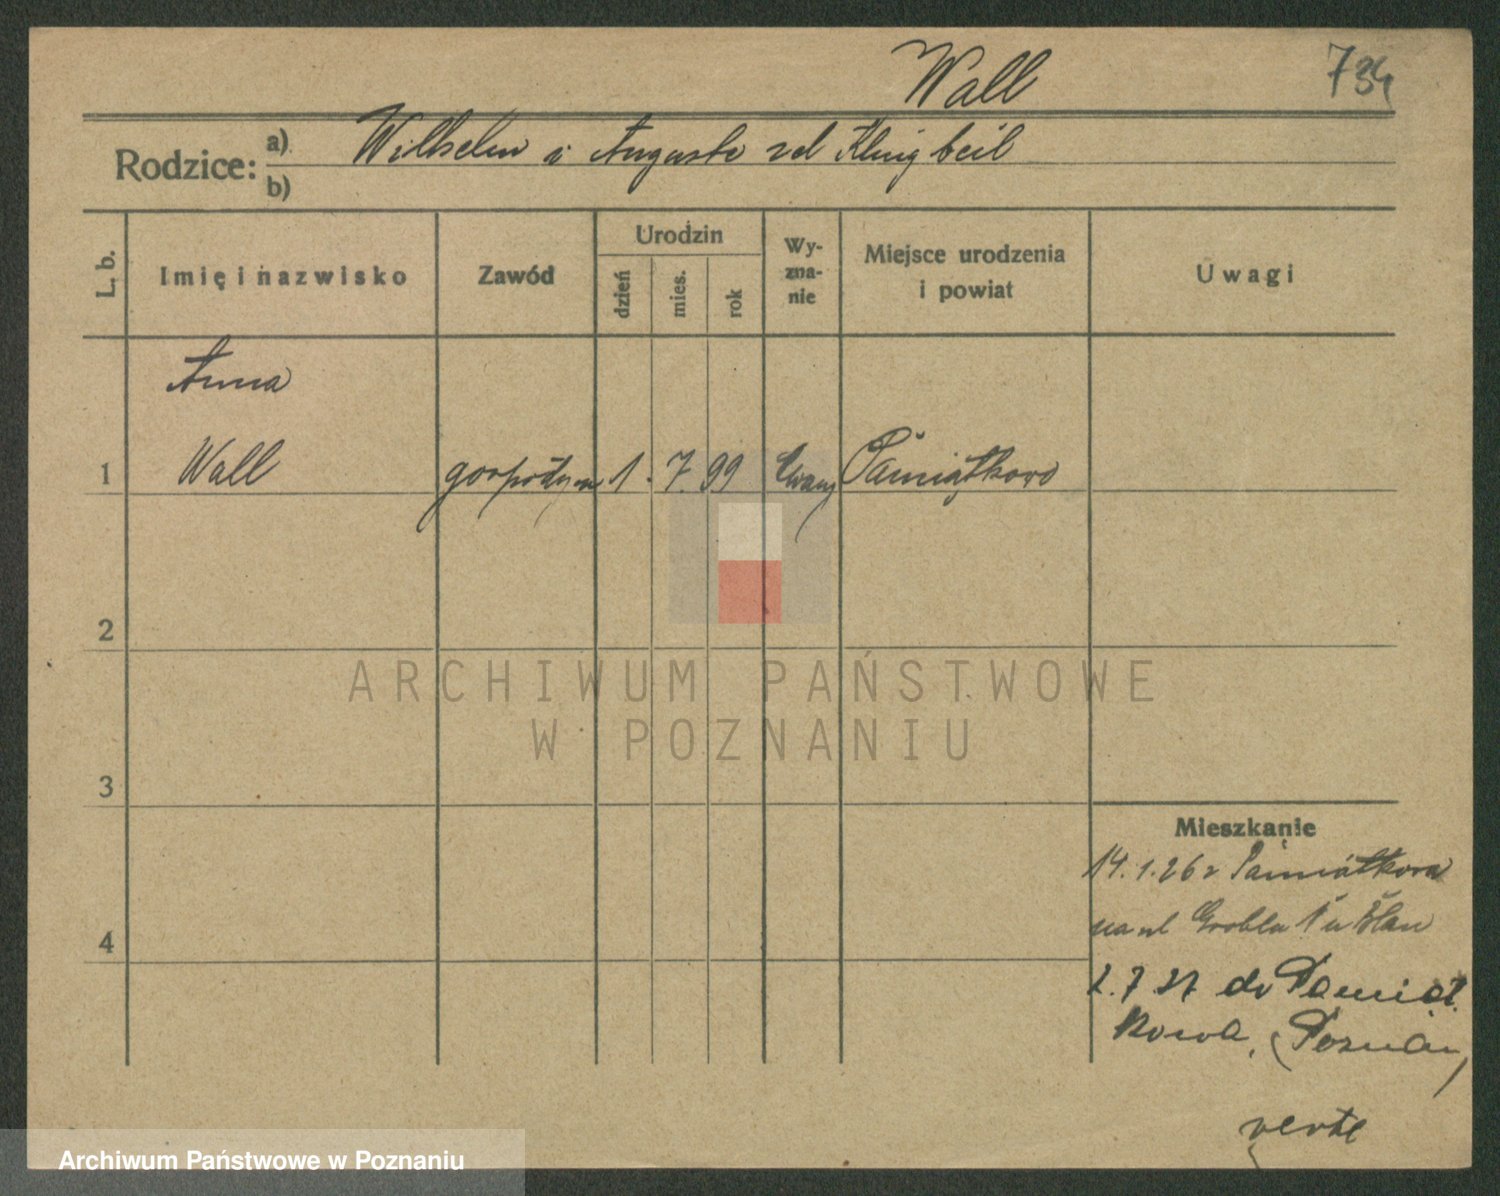 Wall 734
Rodzice: a) Wilhelm i Auguste zd Klingbeil
b)
L. b. Imię i nazwisko Zawód Urodzin dzień mies. rok Wy-zna-nie Miejsce urodzenia i powiat Uwagi
Anna
1 Wall gospodyni 1. 7. 99 Ewang Pamiątkowo
2
ARCHIWUM PAŃSTWOWE
W POZNANIU
3
Mieszkanie
14.1.26 z Pamiątkowa
na ul Grobla 1 u
4
2.7 27 do Pamiąt
kowa, (Poznań)
verte
Archiwum Państwowe w Poznaniu